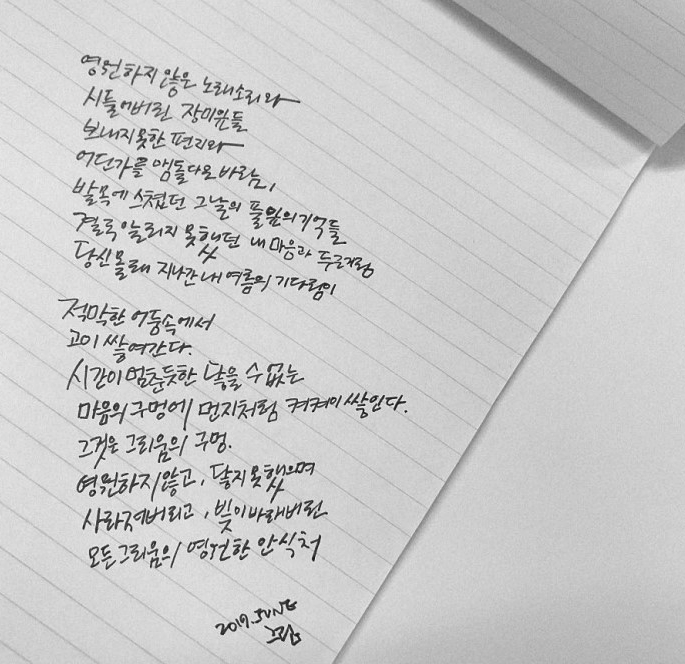 영원하지 않은 노래소리와
시들어버린 장미잎들
보내지못한 편지와
어딘가를 맴돌다온 바람,
발목에 스쳤던 그날의 풀잎의기억들
결국 알리지 못했던 내 마음과 두근거림
당신몰래 지나간 내 여름의 기다림이
적막한 어둠속에서
고이 쌓여간다.
시간이 멈춘듯한 닿을 수 없는
마음의 구멍에 먼지처럼 켜켜이 쌓인다.
그것은 그리움의 구멍.
영원하지않고, 닿지못했으며
사라져버리고, 빛이바래버린
모든그리움의 영원한 안식처
2019. JUNE